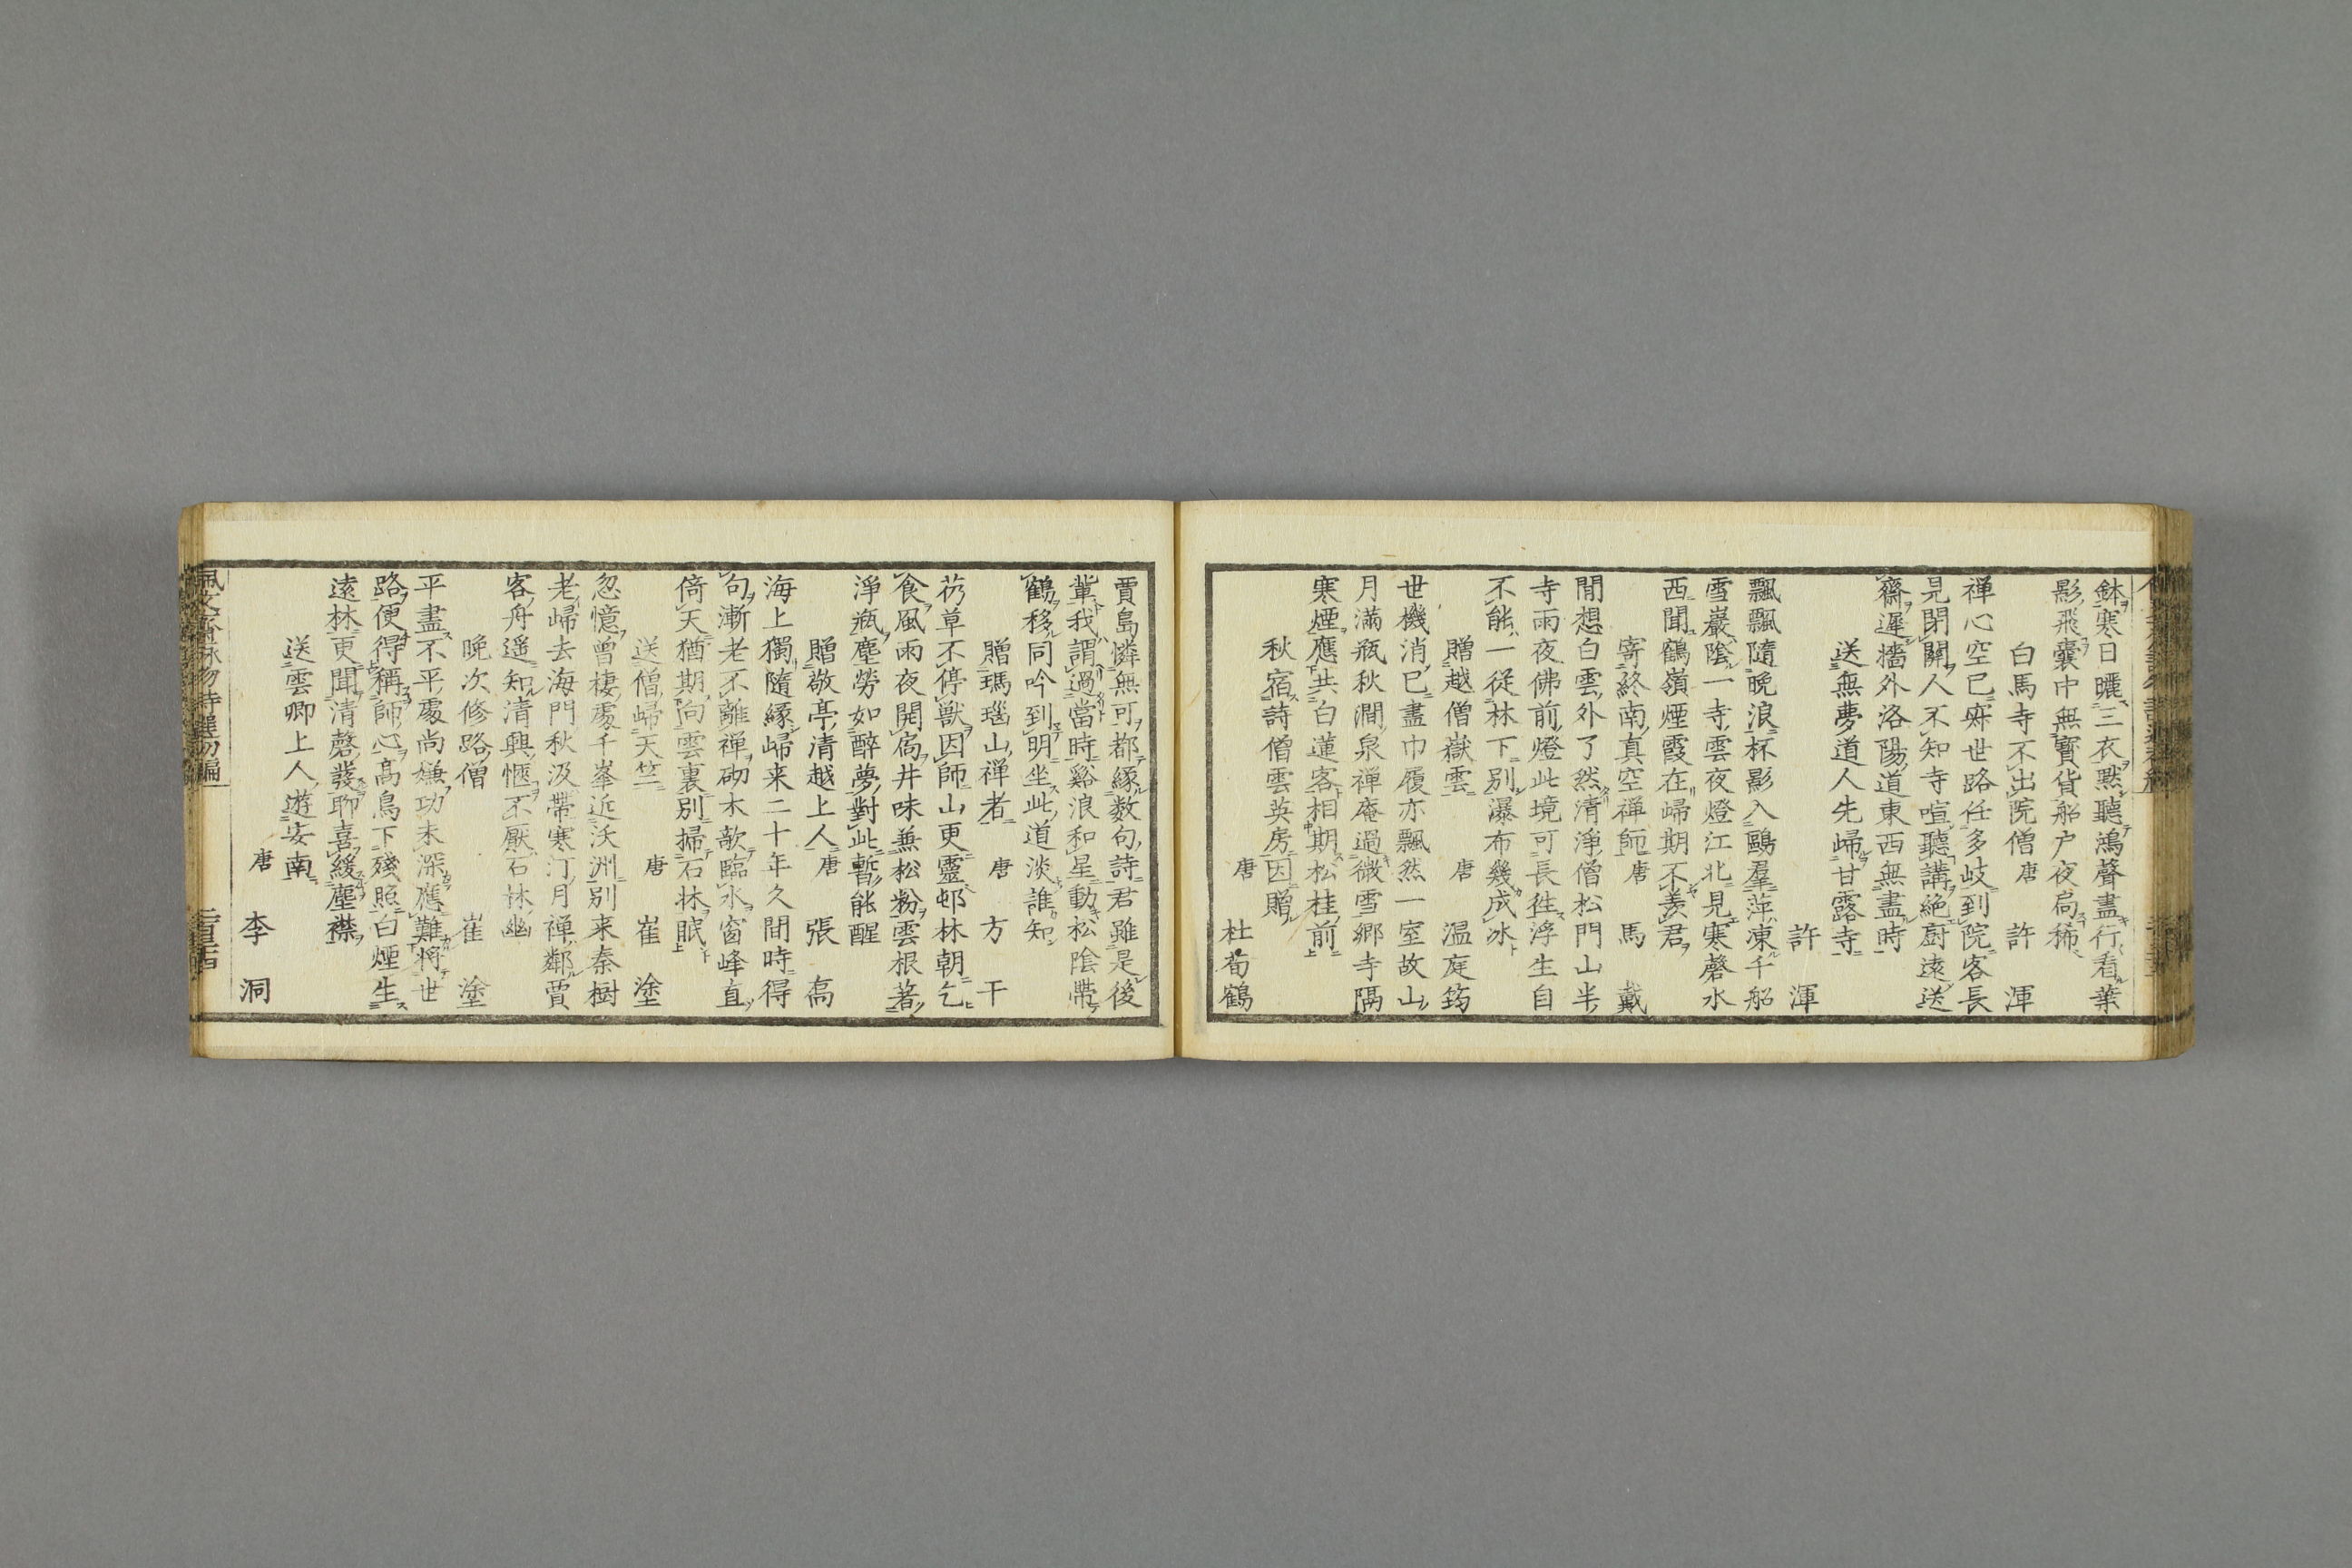 鉢寒日曬三衣黙聽鴻聲盡行看葉
影飛囊中無寳貨船户夜扃稀
白馬寺不出院僧 唐 許渾
禅心空已寂世路任多岐到院客長
見閉關人不知寺喧聽講絶厨遠送
齋遲墻外洛陽道東西無盡時
送無夢道人先歸甘露寺
許渾
飄飄隨晩浪杯影入鷗羣萍凍千船
雪巖陰一寺雲夜燈江北見寒磬水
西聞鶴嶺煙霞在歸期不羨君
寄終南真空禅師 唐 馬戴
間想白雲外了然清淨僧松門山半
寺雨夜佛前燈此境可長徃浮生自
不能一從林下别瀑布幾成冰
贈越僧嶽雲 唐 温庭筠
世機消已盡巾履亦飄然一室故山
月滿瓶秋澗泉禅庵過微雪郷寺隔
寒煙應共白蓮客相期松桂前
秋宿詩僧雲英房因贈
唐 杜荀鶴
賈島憐無可都縁数句詩君雖是後
輩我謂過當時谿浪和星動松陰帶
鶴移同吟到明坐此道淡誰知
贈瑪瑙山禅者 唐 方干
芿草不停獣因師山更靈邨林朝乞
食風雨夜開扃井味兼松粉雲根着
淨瓶塵勞如醉夢對此暫能醒
贈敬亭清越上人 唐 張喬
海上獨隨縁歸来二十年久間時得
句漸老不離禅砌木欹臨水窗峰直
倚天猶期向雲裏别掃石牀眠
送僧歸天竺 唐 崔塗
忽憶曽棲處千峯近沃洲别来秦樹
老歸去海門秋汲帶寒汀月禅鄰賈
客舟遥知清興愜不厭石牀幽
晩次修路僧 崔塗
平盡不平處尚嫌功未深應難将世
路便得稱師心高鳥下殘照白煙生
遠林更聞清磬發聊喜緩塵襟
送雲卿上人遊安南
唐 李洞